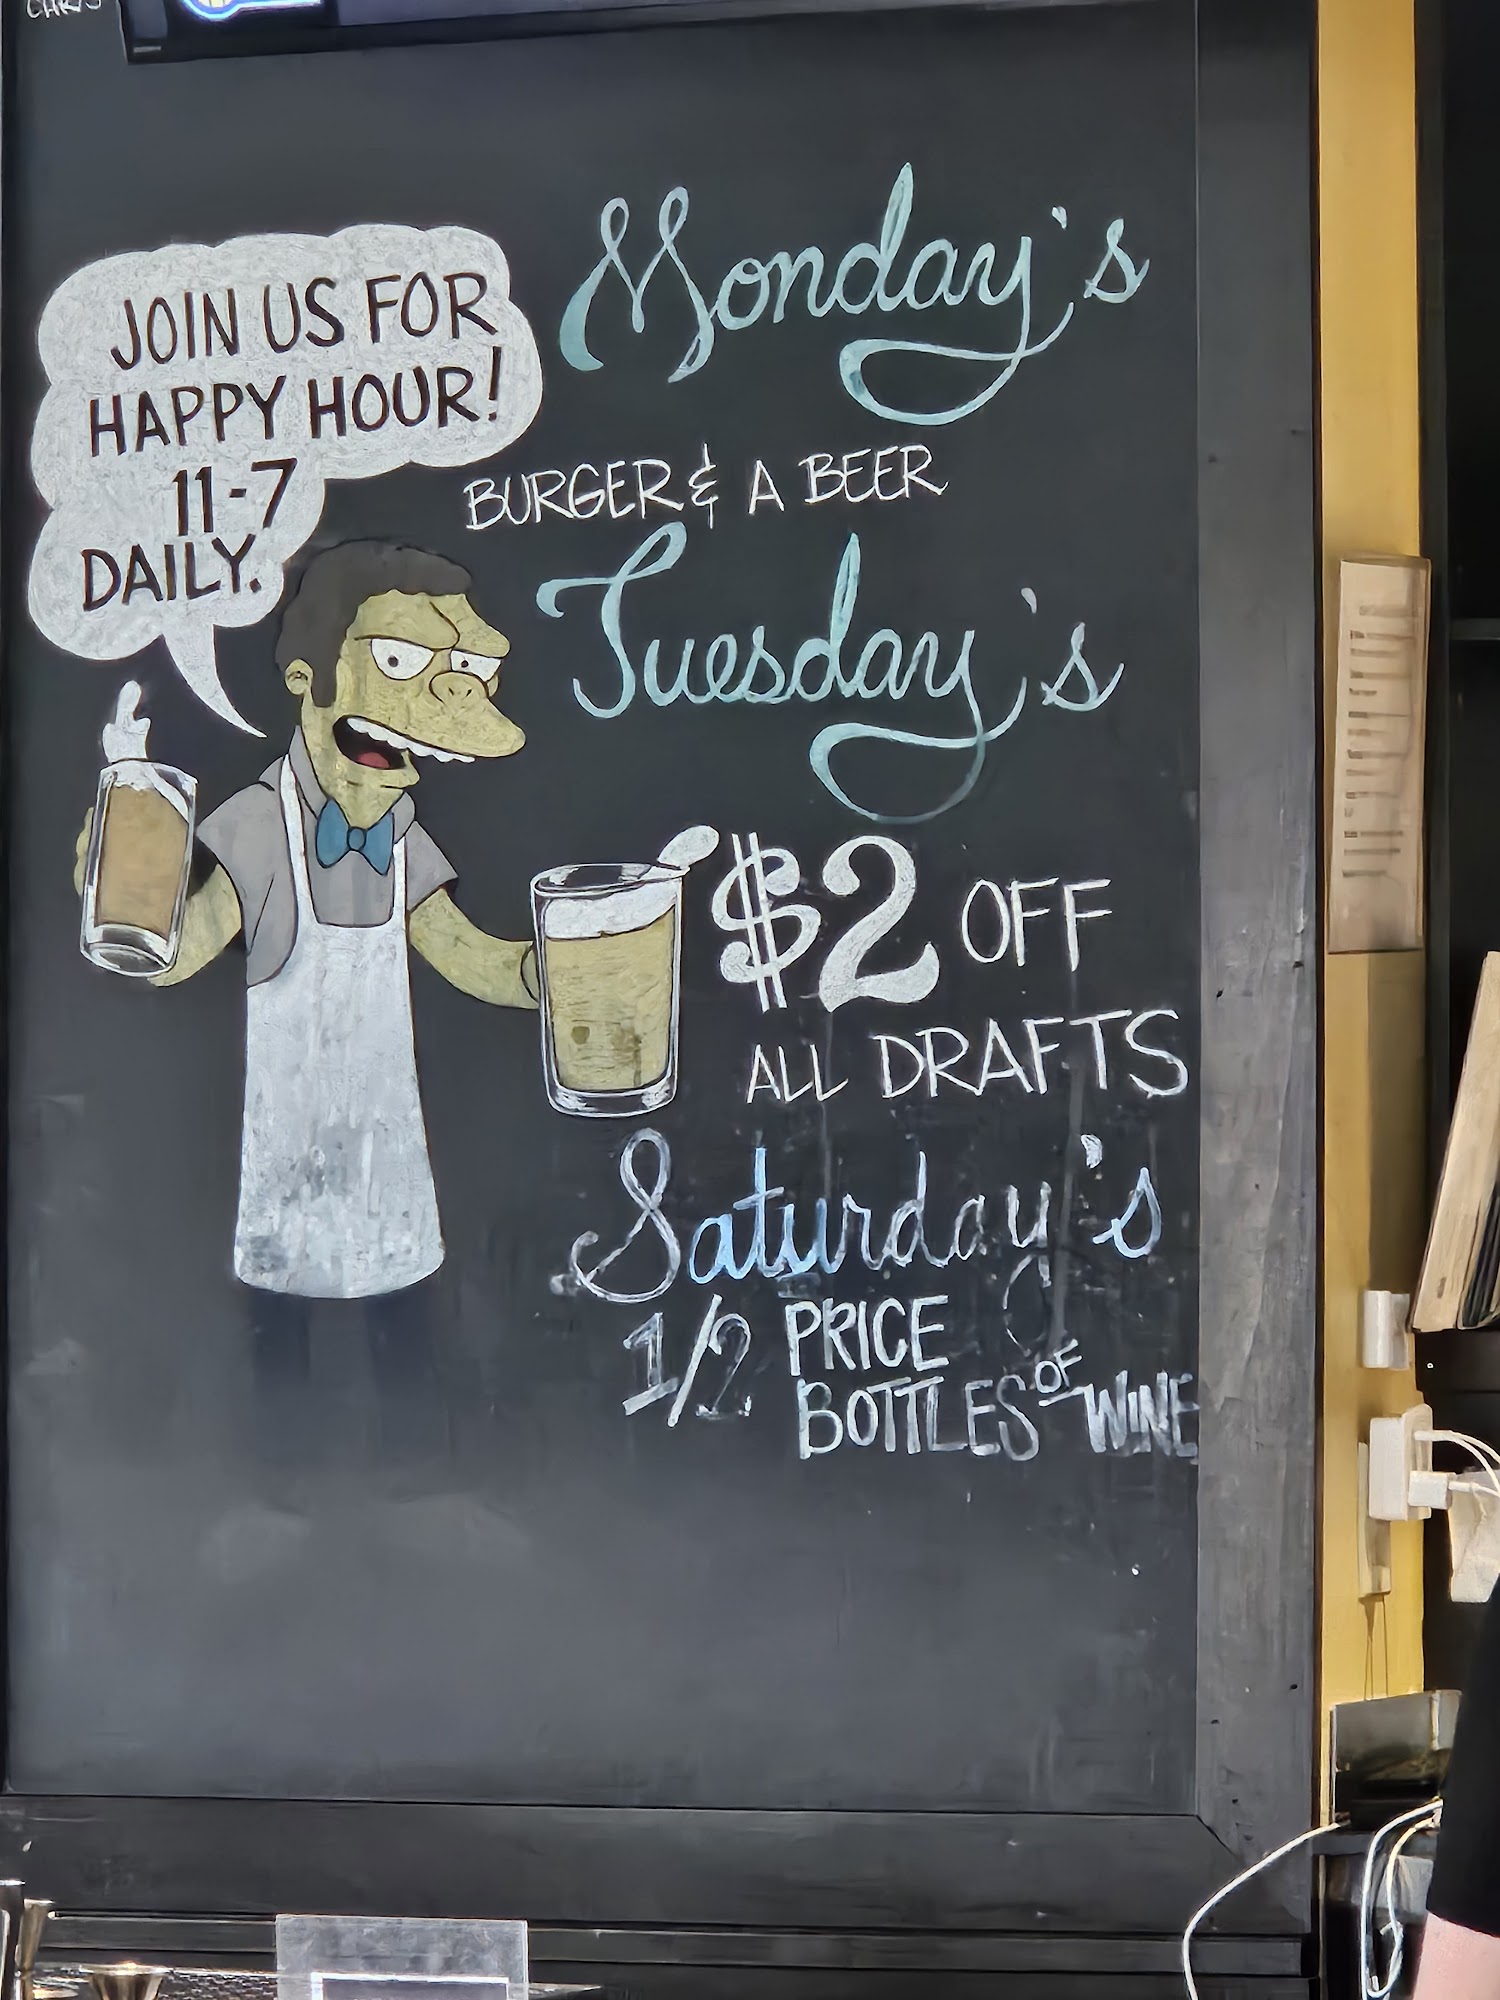 CHRIS
JOIN US FOR
HAPPY HOUR!
11-7
DAILY.
Monday's
BURGER & A BEER
Tuesday's
$2 OFF
ALL DRAFTS
Saturday's
1/2 PRICE
BOTTLES OF WINE